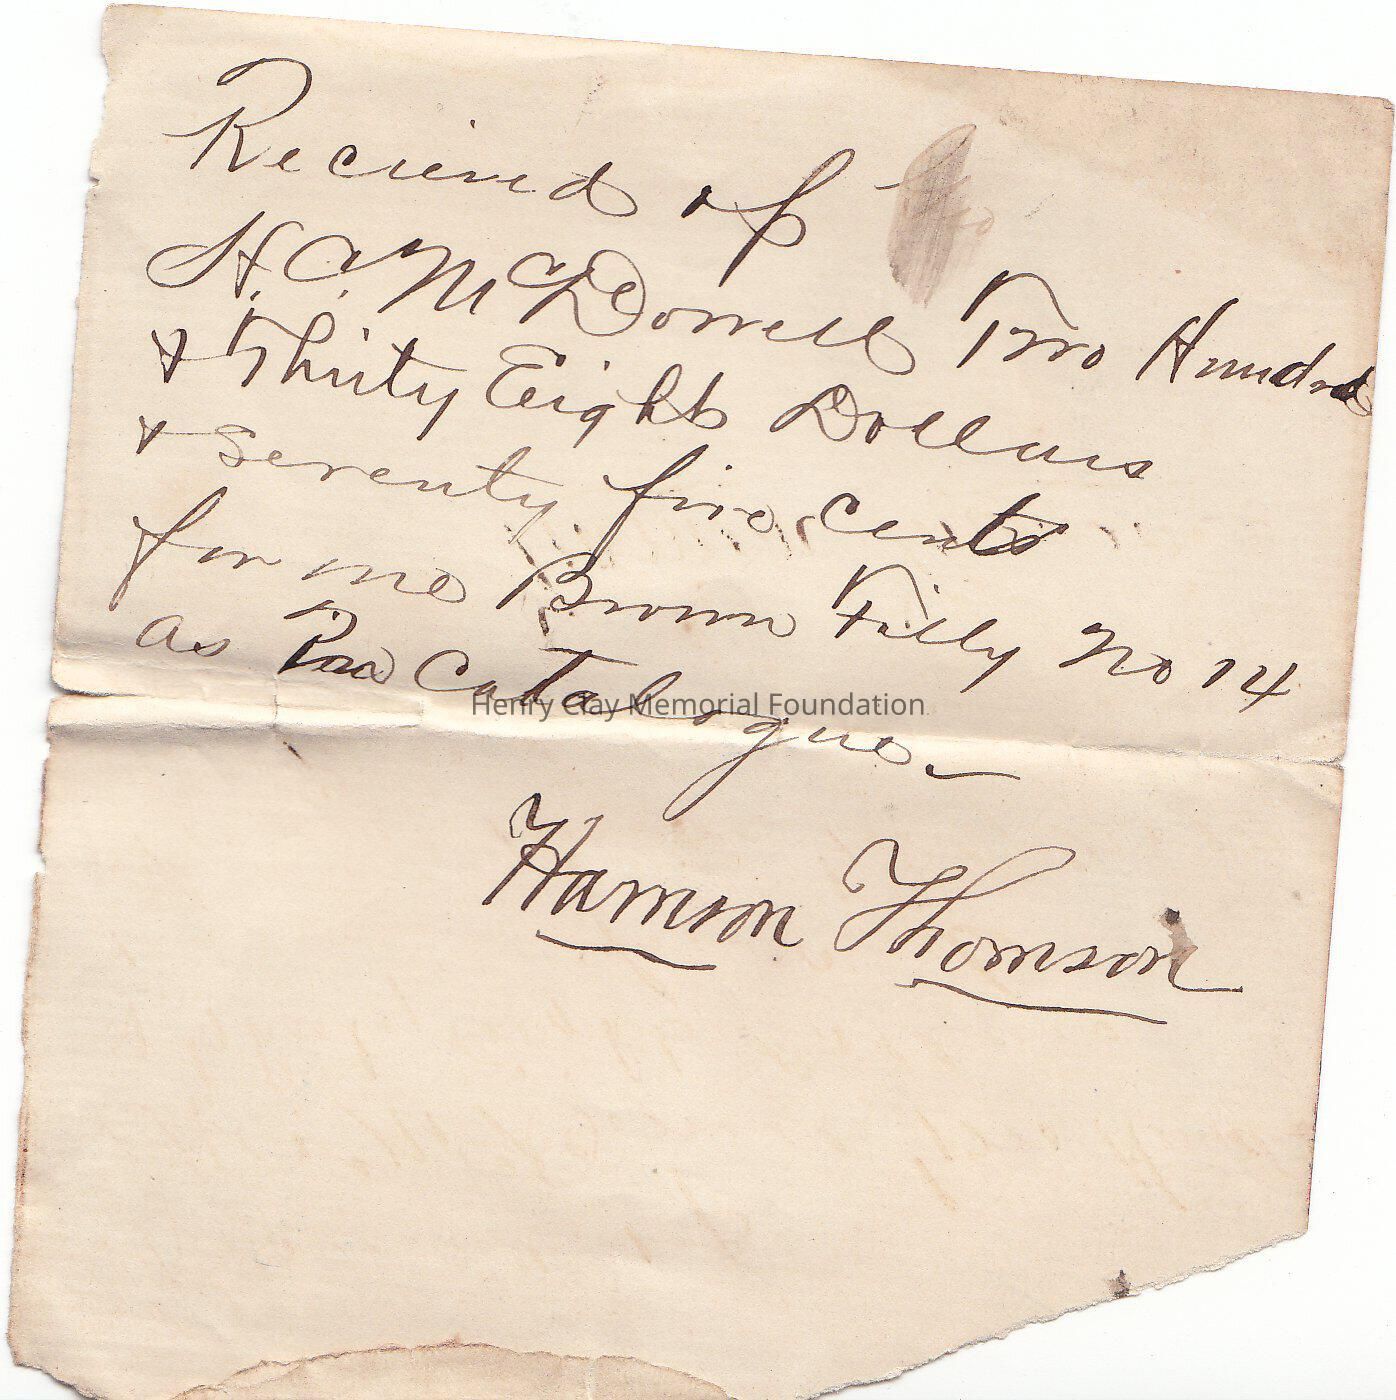 Recieved of
H. C. McDowell Two Hundred
& Thirty Eight Dollars
& Seventy five cents
for one Brown Filly No 14
as Per Catalogue
Henry Clay Memorial Foundation
Harrison Thomson